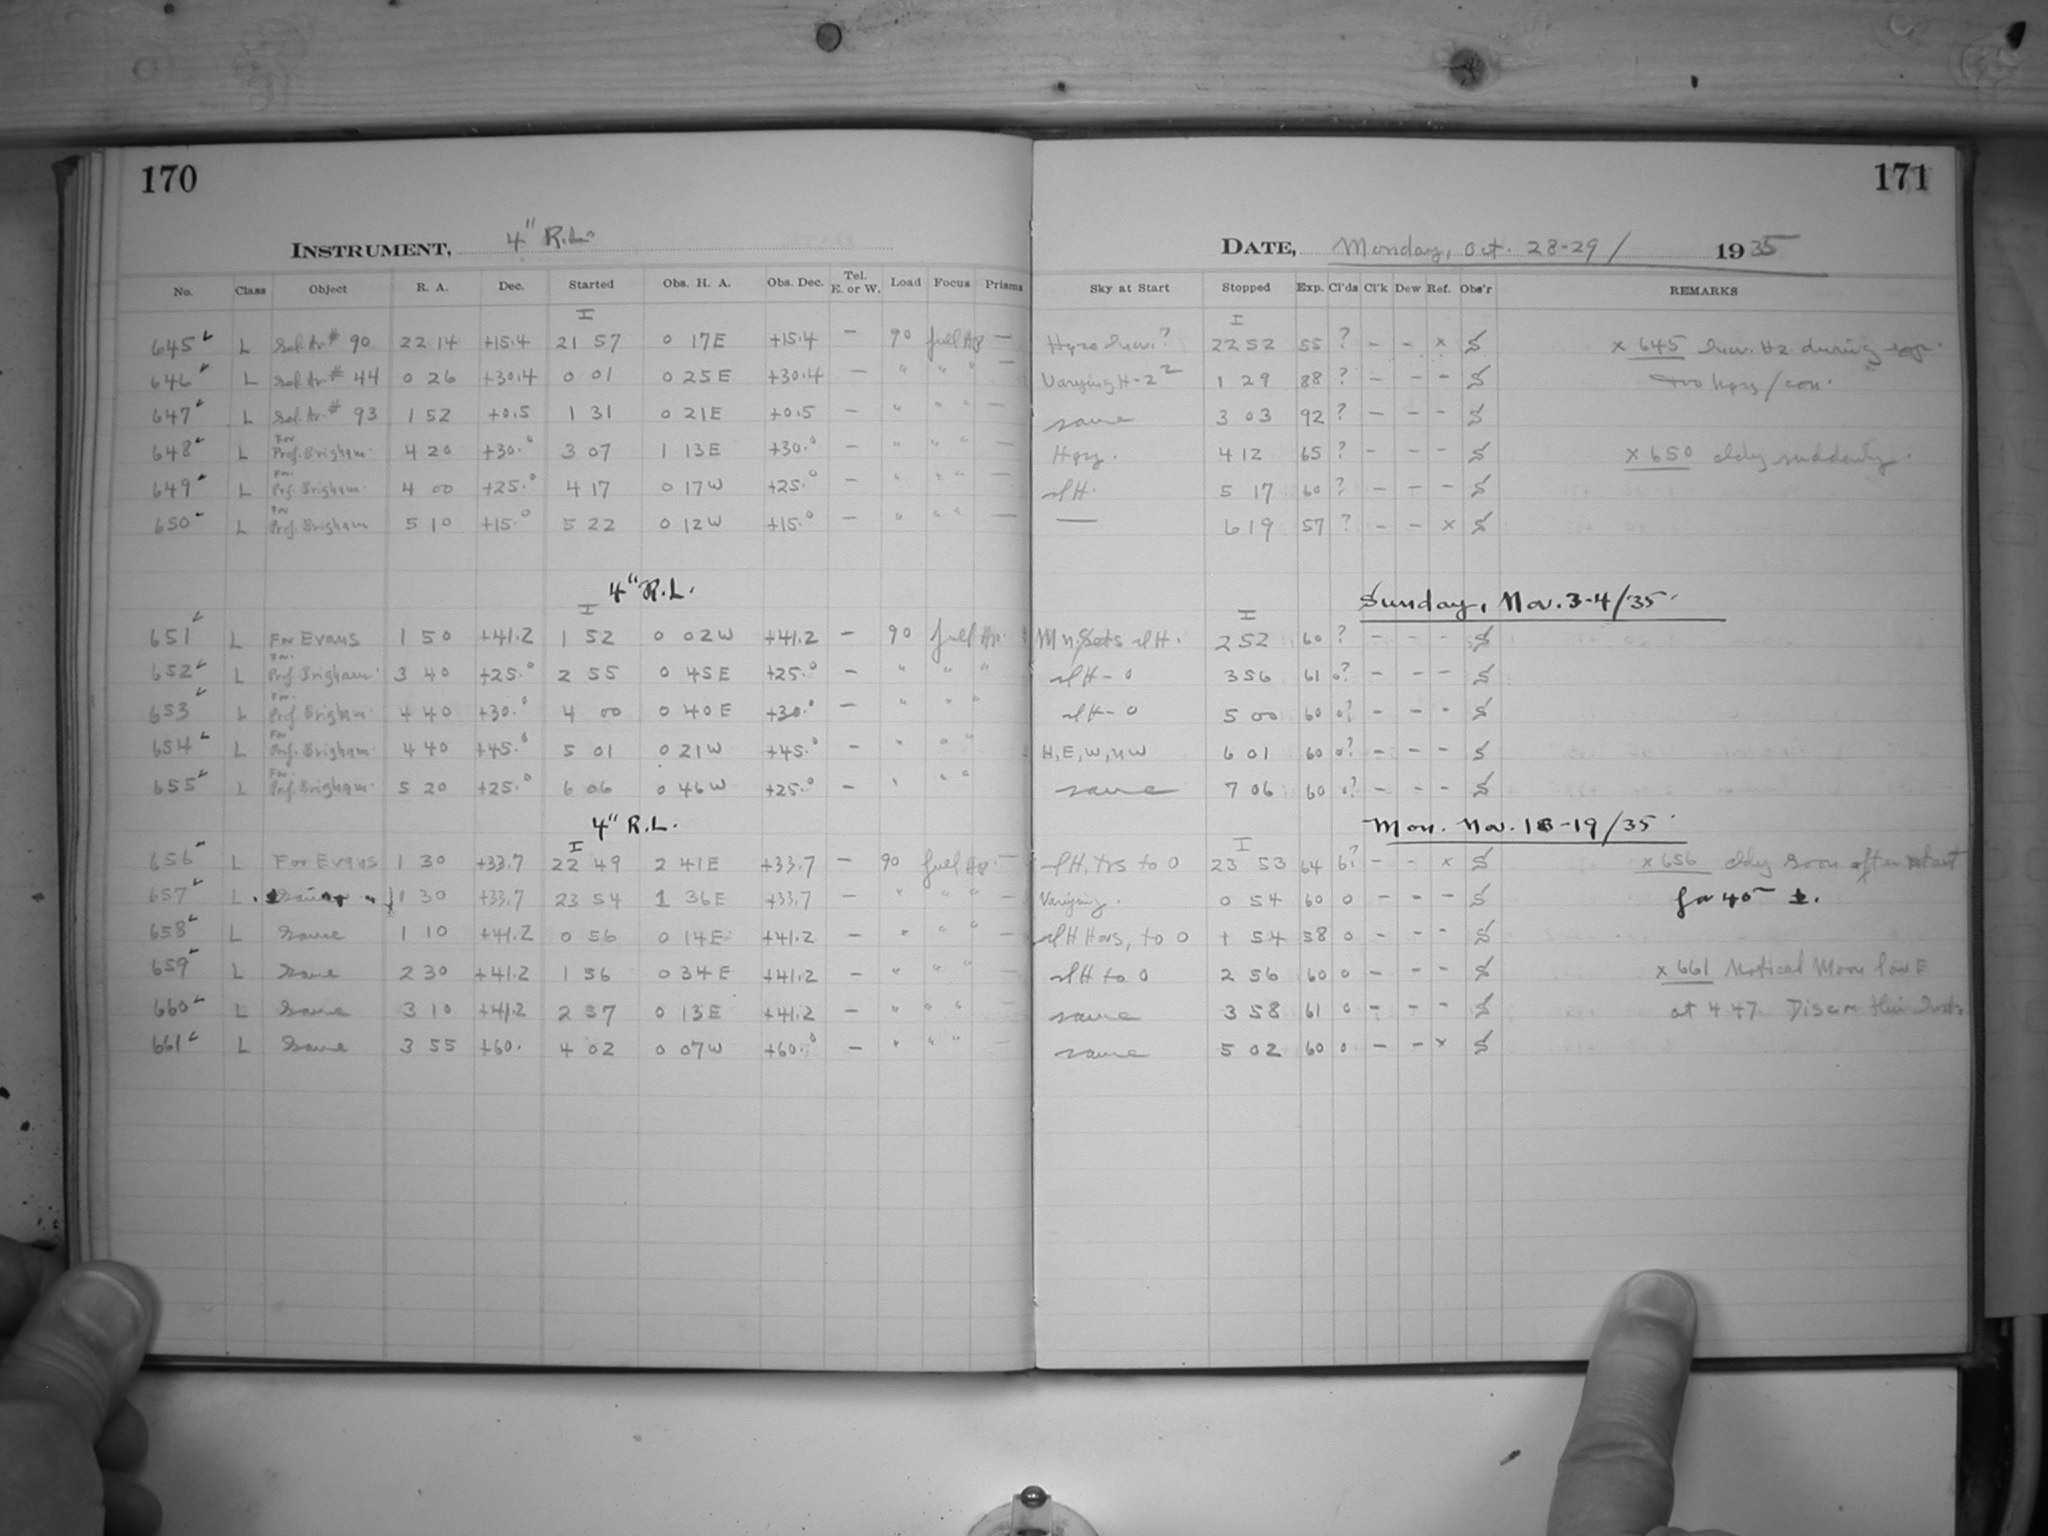 170
171
INSTRUMENT, 4" R.L.
DATE, Monday, Oct. 28-29/ 1935
No. Class Object R. A. Dec. Started Obs. H. A. Obs. Dec. Tel. E. or W. Load Focus Prisms Sky at Start Stopped Exp. Cl'ds Cl'k Dew Ref. Obs'r REMARKS
I I
645 L Sel. Ar # 90 22 14 +15.4 21 57 0 17E +15.4 — 90 full Ap — 22 52 55 ? - - x S x 645 Hz during
646 L Sel. Ar # 44 0 26 +30.4 0 01 0 25E +30.4 — " " " — Varying H-2 1 29 88 ? - - - S
647 L Sel. Ar. # 93 1 52 +0.5 1 31 0 21E +0.5 — " " " — same 3 03 92 ? - - - S
648 L For Prof. Brigham 4 20 +30.° 3 07 1 13E +30.° — " " " — Hzy. 4 12 65 ? - - - S x 650 cldy suddenly.
649 L For Prof. Brigham 4 00 +25.° 4 17 0 17W +25.° — " " " — sl H. 5 17 60 ? - - - S
650 L For Prof. Brigham 5 10 +15.° 5 22 0 12W +15.° — " " " — — 6 19 57 ? - - x S
4" R.L. Sunday, Nov. 3-4/35
I I
651 L For Evans 1 50 +41.2 1 52 0 02W +41.2 — 90 full Ap. Mn. Sets sl H. 2 52 60 ? - - - S
652 L For Prof. Brigham 3 40 +25.° 2 55 0 45E +25.° — " " " sl H - 0 3 56 61 0? - - - S
653 L For Prof. Brigham 4 40 +30.° 4 00 0 40E +30.° — " " " sl H - 0 5 00 60 0? - - - S
654 L For Prof. Brigham 4 40 +45.° 5 01 0 21W +45.° — " " " H, E, W, NW 6 01 60 0? - - - S
655 L For Prof. Brigham 5 20 +25.° 6 06 0 46W +25.° — " " " same 7 06 60 0? - - - S
4" R.L. Mon. Nov. 18-19/35
I I
656 L For Evans 1 30 +33.7 22 49 2 41E +33.7 — 90 full Ap. — sl H, trs to 0 23 53 64 6? - - x S x 656 cldy soon after start
657 L same 1 30 +33.7 23 54 1 36E +33.7 — " " " — Varying. 0 54 60 0 - - - S for 40m ±.
658 L Same 1 10 +41.2 0 56 0 14E +41.2 — " " " — sl H Hors, to 0 1 54 58 0 - - - S
659 L Same 2 30 +41.2 1 56 0 34E +41.2 — " " " — sl H to 0 2 56 60 0 - - - S x 661 Noticed Moon low E
660 L Same 3 10 +41.2 2 57 0 13E +41.2 — " " " — same 3 58 61 0 - - - S at 4 47.
661 L Same 3 55 +60. 4 02 0 07W +60.° — " " " — same 5 02 60 0 - - x S